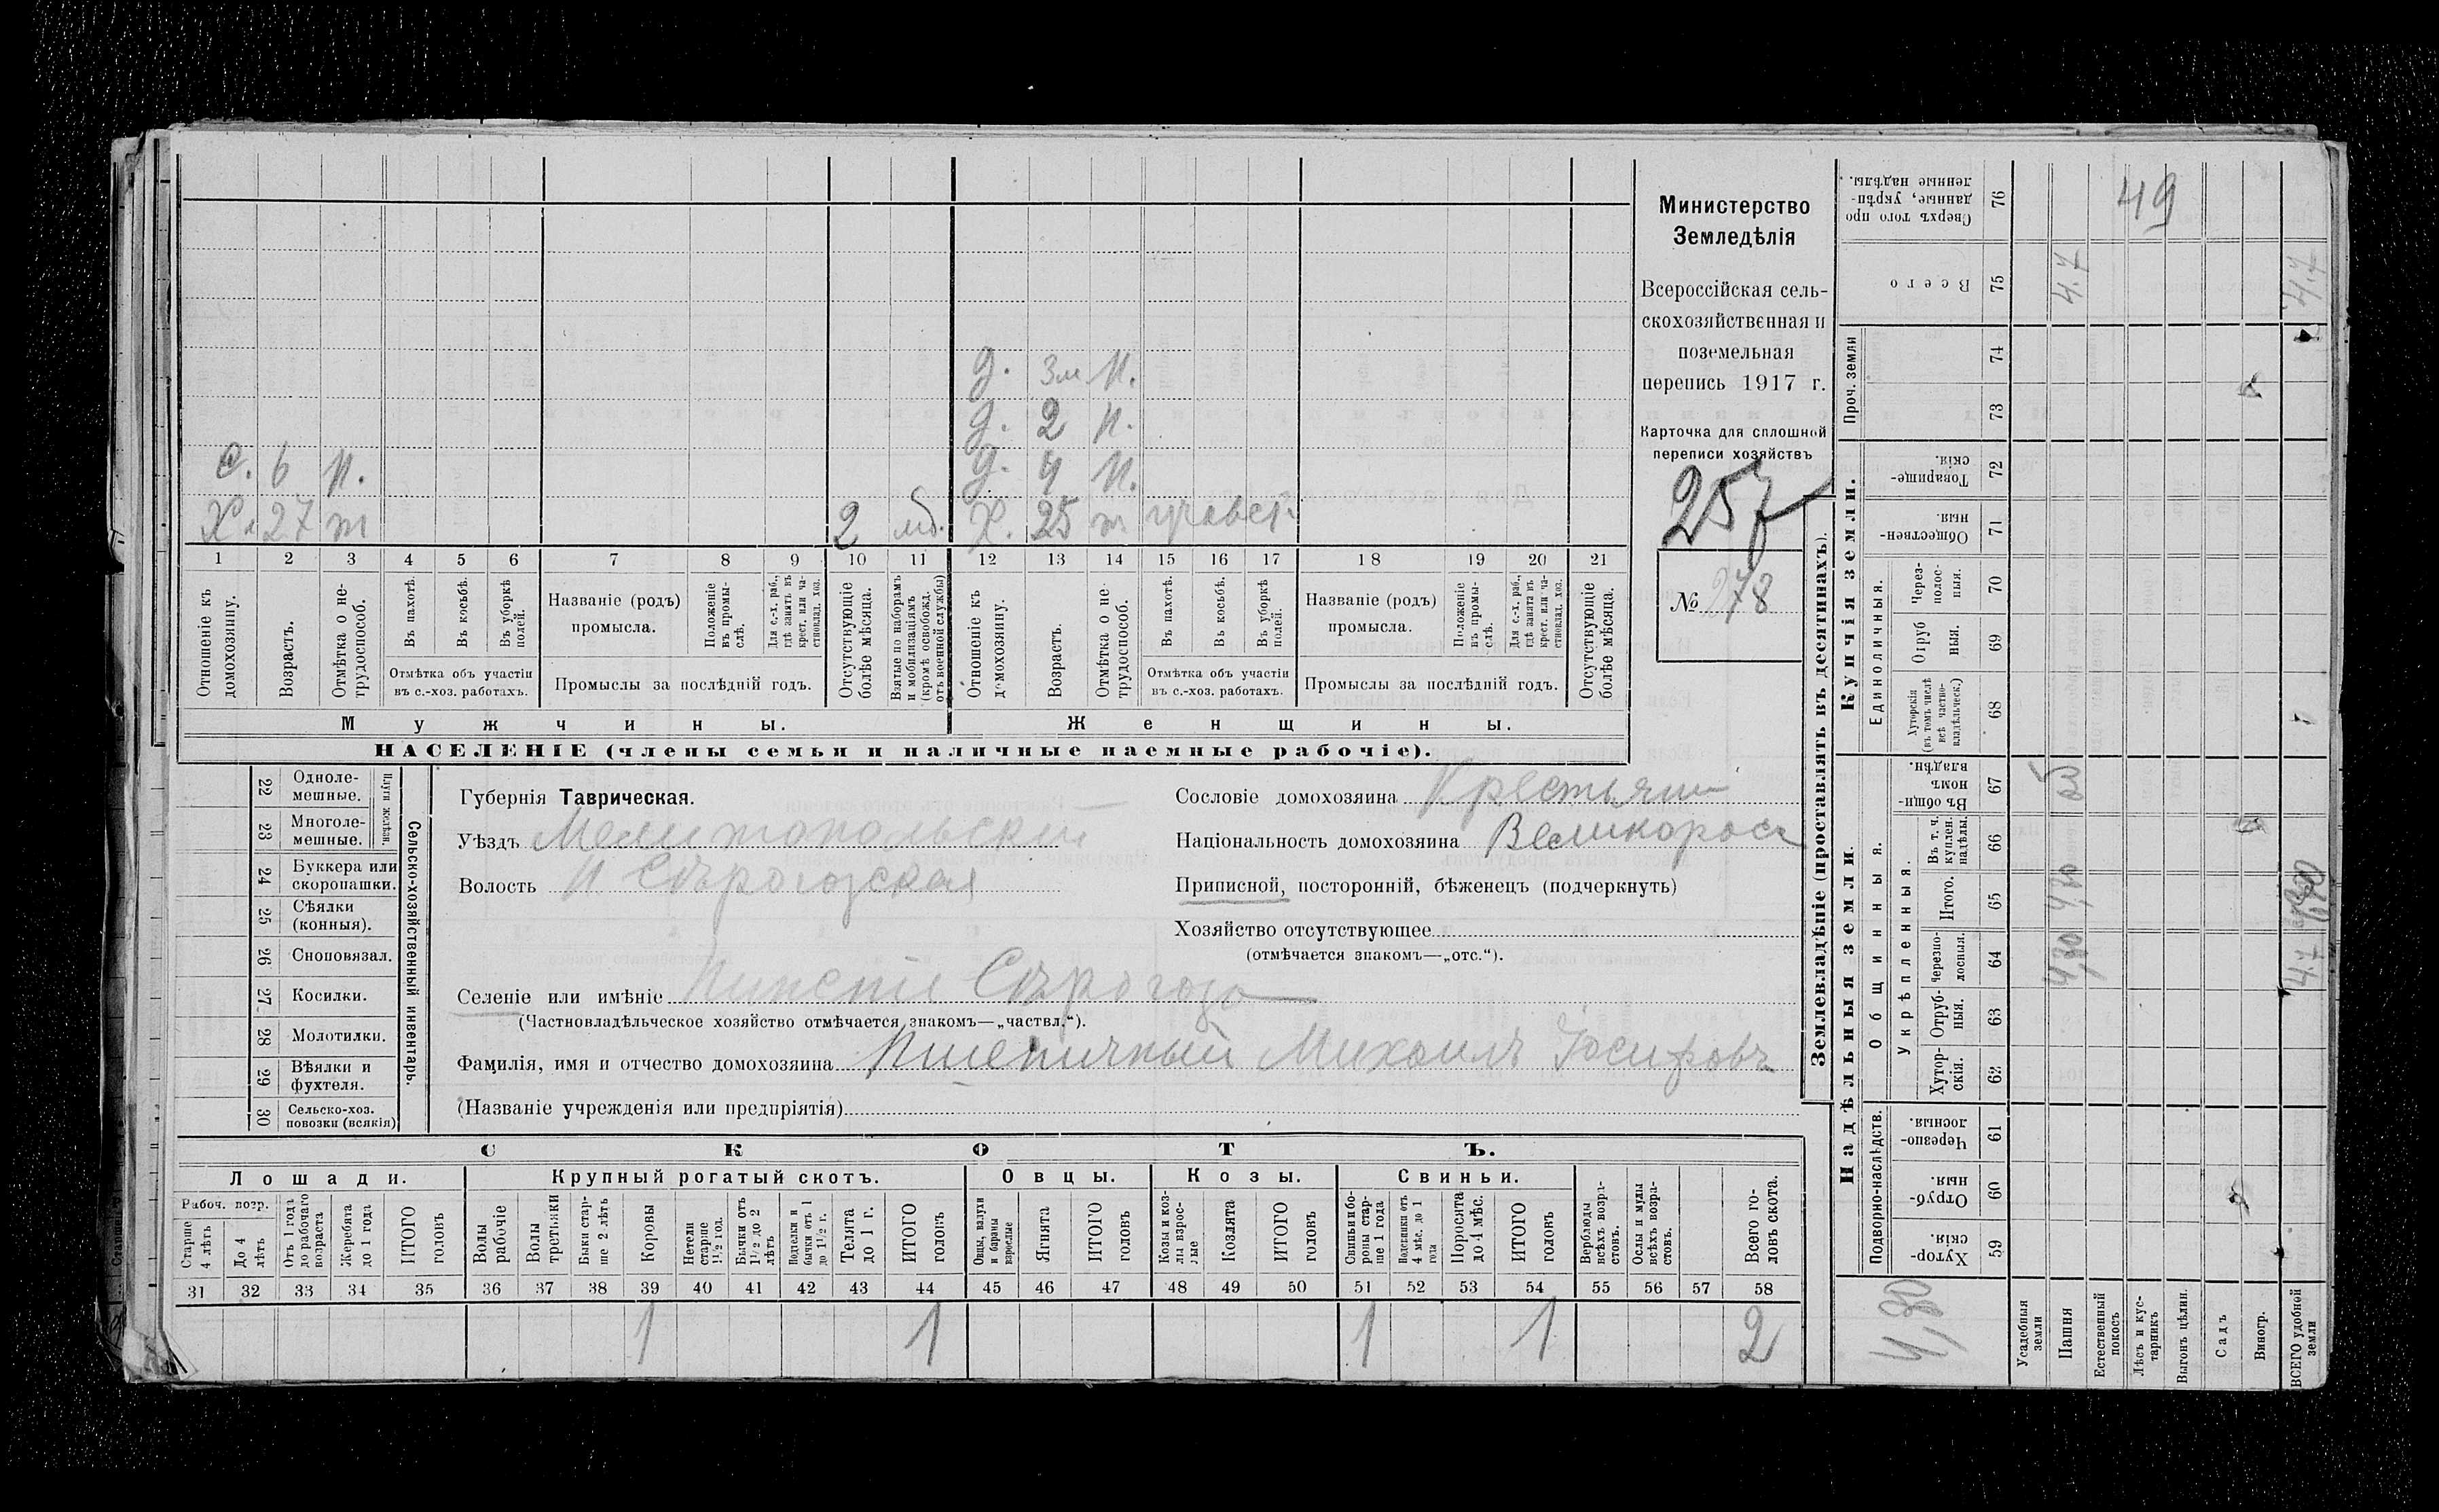 д. 3м н.
д. 2 н.
с. 6 н. д. 4 н.
Х. 27 т 2 мб. Х. 25 т участ.
1 2 3 4 5 6 7 8 9 10 11 12 13 14 15 16 17 18 19 20 21
Отношеніе къ домохозяину.
Возрастъ.
Отмѣтка о нетрудоспособ.
Въ пахотѣ.
Въ косьбѣ.
Въ уборкѣ полей.
Отмѣтка объ участіи
въ с.-хоз. работахъ.
Названіе (родъ)
промысла.
Положеніе въ промыслѣ.
Для с.-х. раб., гдѣ занятъ въ крест. или частновлад. хоз.
Промыслы за послѣдній годъ.
Отсутствующіе болѣе мѣсяца.
Взятые по наборамъ и мобилизаціямъ (кромѣ освобожд. отъ военной службы)
Отношеніе къ домохозяину.
Возрастъ.
Отмѣтка о нетрудоспособ.
Въ пахотѣ.
Въ косьбѣ.
Въ уборкѣ полей.
Отмѣтка объ участіи
въ с.-хоз. работахъ.
Названіе (родъ)
промысла.
Положеніе въ промыслѣ.
Для с.-х. раб., гдѣ заната въ крест. или частновлад. хоз.
Промыслы за послѣдній годъ.
Отсутствующіе болѣе мѣсяца.
Мужчины. Женщины.
НАСЕЛЕНІЕ (члены семьи и наличные наемные рабочіе).
Министерство
Земледѣлія
Всероссійская сель-
скохозяйственная и
поземельная
перепись 1917 г.
Карточка для сплошной
переписи хозяйствъ
257
№ 278
22 Одноле-
мешные.
23 Многоле-
мешные.
Плуги желѣзн.
24 Буккера или
скоропашки.
25 Сѣялки
(конныя).
26 Сноповязал.
27 Косилки.
28 Молотилки.
29 Вѣялки и
фухтеля.
30 Сельско-хоз.
повозки (всякія)
Сельско-хозяйственный инвентарь.
Губернія Таврическая.
Уѣздъ Мелитопольский
Волость Н Сѣрогозская
Сословіе домохозяина Крестьянин
Національность домохозяина Великоросс
Приписной, посторонній, бѣженецъ (подчеркнуть)
Хозяйство отсутствующее
(отмѣчается знакомъ—„отс.“).
Селеніе или имѣніе Нижніе Сѣрогозы
(Частновладѣльческое хозяйство отмѣчается знакомъ—„частвл.“).
Фамилія, имя и отчество домохозяина Пшеничный Михаилъ Іосифовъ
(Названіе учрежденія или предпріятія)
СКОТЪ.
Лошади. Крупный рогатый скотъ. Овцы. Козы. Свиньи.
Рабоч. возр.
Старше 4 лѣтъ
До 4 лѣтъ
Отъ 1 года до рабочаго возраста
Жеребята до 1 года
ИТОГО головъ
Волы рабочіе
Волы третьяки
Быки старше 2 лѣтъ
Коровы
Нетели старше 1½ год.
Бычки отъ 1½ до 2 лѣтъ
Подтелки и бычки отъ 1 до 1½ г.
Телята до 1 г.
ИТОГО головъ
Овцы, валухи и бараны взрослые
Ягнята
ИТОГО головъ
Козы и козлы взрослые
Козлята
ИТОГО головъ
Свиньи и боровы старше 1 года
Подсвинки отъ 4 мѣс. до 1 года
Поросята до 4 мѣс.
ИТОГО головъ
Верблюды всѣхъ возрастовъ.
Ослы и мулы всѣхъ возрастовъ.
Всего головъ скота.
31 32 33 34 35 36 37 38 39 40 41 42 43 44 45 46 47 48 49 50 51 52 53 54 55 56 57 58
1 1 1 1 2
Землевладѣніе (проставлять въ десятинахъ).
Надѣльныя земли. Купчія земли. Проч. земли
Подворно-наслѣдств.
Общинныя.
Укрѣпленныя.
Единоличныя.
Хуторскія. 59
Отрубныя. 60
Черезполосныя. 61
Хуторскія. 62
Отрубныя. 63
Черезполосныя. 64
Итого. 65
Въ т. ч. куплен. надѣлы. 66
Въ общинномъ владѣн. 67
Хуторскія (въ томъ числѣ всѣ частновладѣльческ.) 68
Отрубныя. 69
Черезполосныя. 70
Общественныя. 71
Товарищескія. 72
73
74
Всего 75
Сверхъ того проданные, укрѣпленные надѣлы. 76
4,80
Усадебныя земли
Пашня
Естественный покосъ
Лѣсъ и кустарникъ
Выгонъ цѣлин.
Садъ
Виногр.
ВСЕГО удобной земли
4.7
49
4.7
4.7